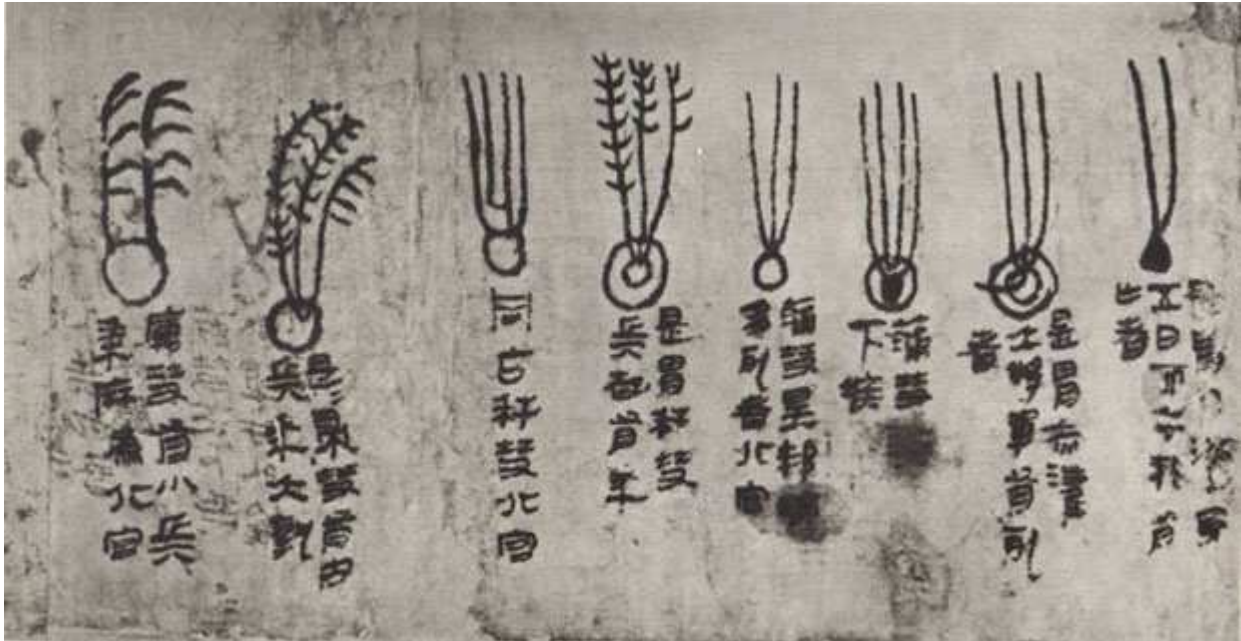 五日而去邦有
亡者
是胃赤灌
大將軍有死
者
蒲彗
下疾
蒲彗星邦
多死者北宮
是胃秆彗
兵起有年
同占秆彗北宮
是是帚彗有內
兵年大孰
厲彗有小兵
黍麻為北宮